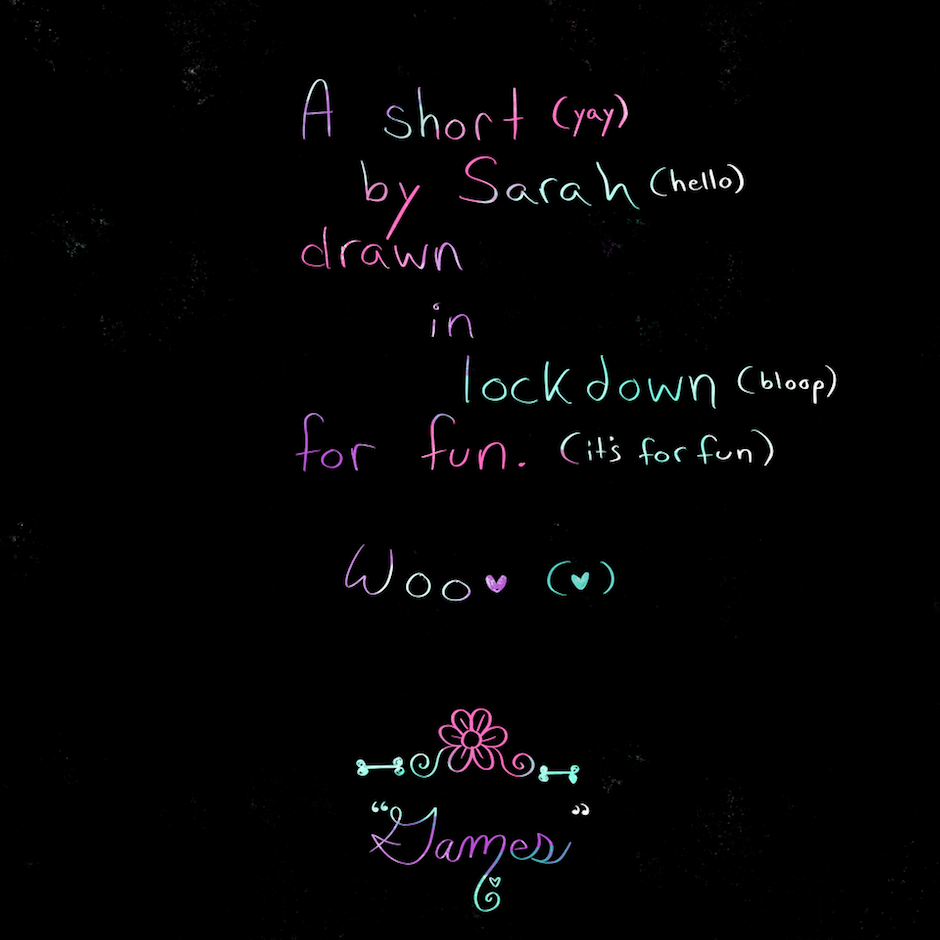 A short (yay)
by Sarah (hello)
drawn
in
lockdown (bloop)
for fun. (it's for fun)
Woo♥ (♥)
"Games"